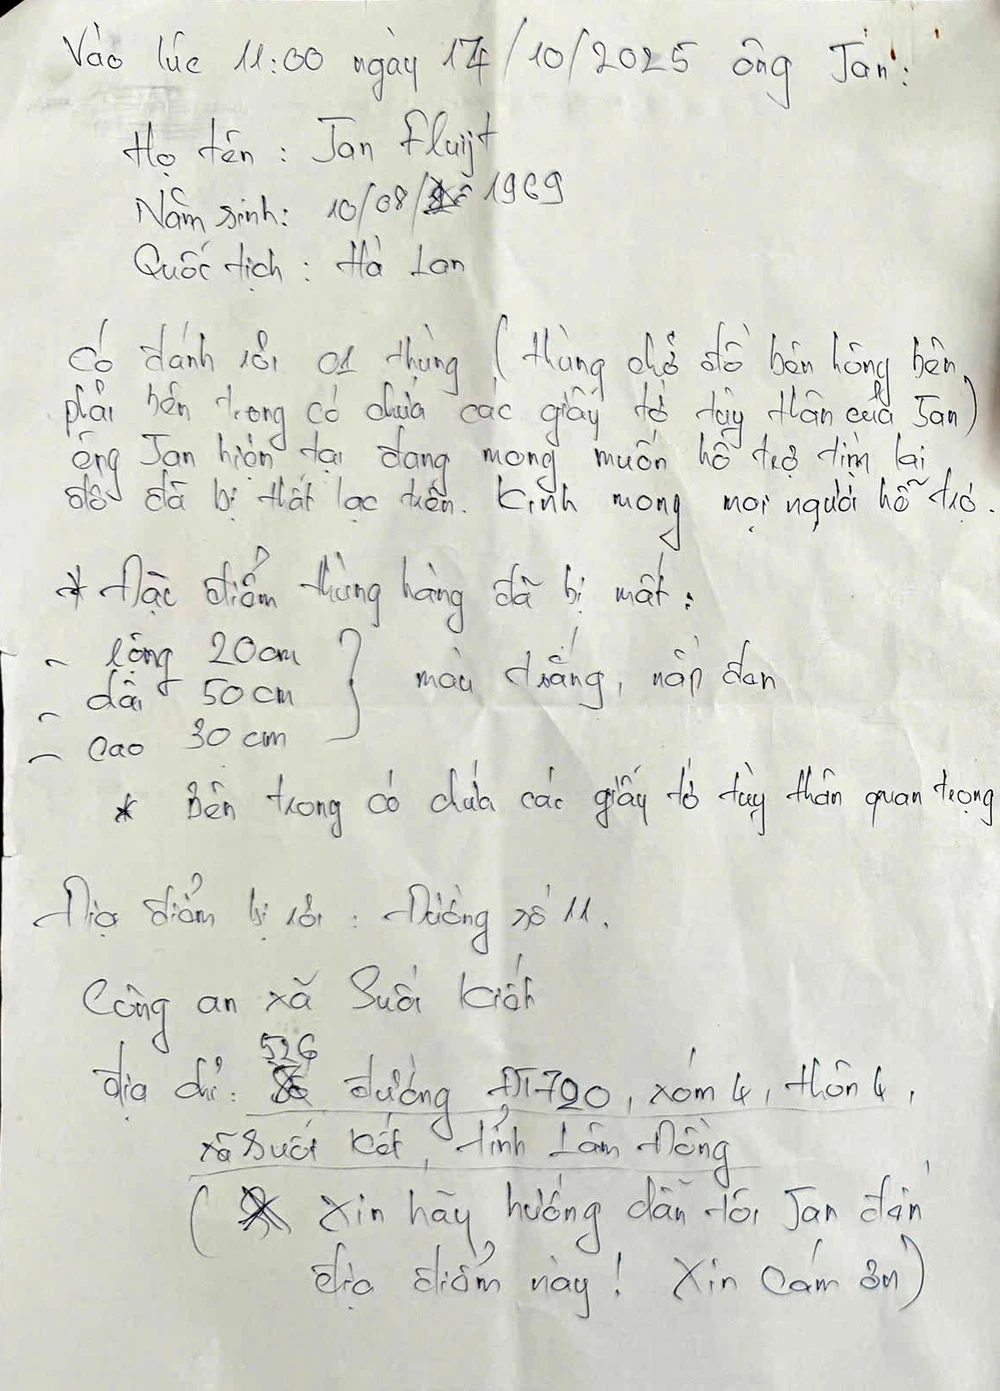 Vào lúc 11:00 ngày 17/10/2025 ông Jan:
Họ tên : Jan Fluijt
Năm sinh: 10/08/ 1969
Quốc tịch : Hà Lan
Có đánh rơi 01 thùng ( thùng chở đồ bên hông bên
phải bên trong có chứa các giấy tờ tùy thân của Jan)
ông Jan hiện tại đang mong muốn hỗ trợ tìm lại
đồ đã bị thất lạc trên. Kính mong mọi người hỗ trợ.
* Đặc điểm thùng hàng đã bị mất :
- rộng 20cm
- dài 50cm
- cao 30cm
màu trắng, nắp đen
* Bên trong có chứa các giấy tờ tùy thân quan trọng
Địa điểm bị rơi : Đường số 11.
Công an xã Suối Kiết
địa chỉ : 526 đường ĐT720, xóm 4, thôn 4,
xã Suối Kiết, tỉnh Lâm Đồng
( Xin hãy hướng dẫn tới Jan đến
địa điểm này ! Xin cám ơn)